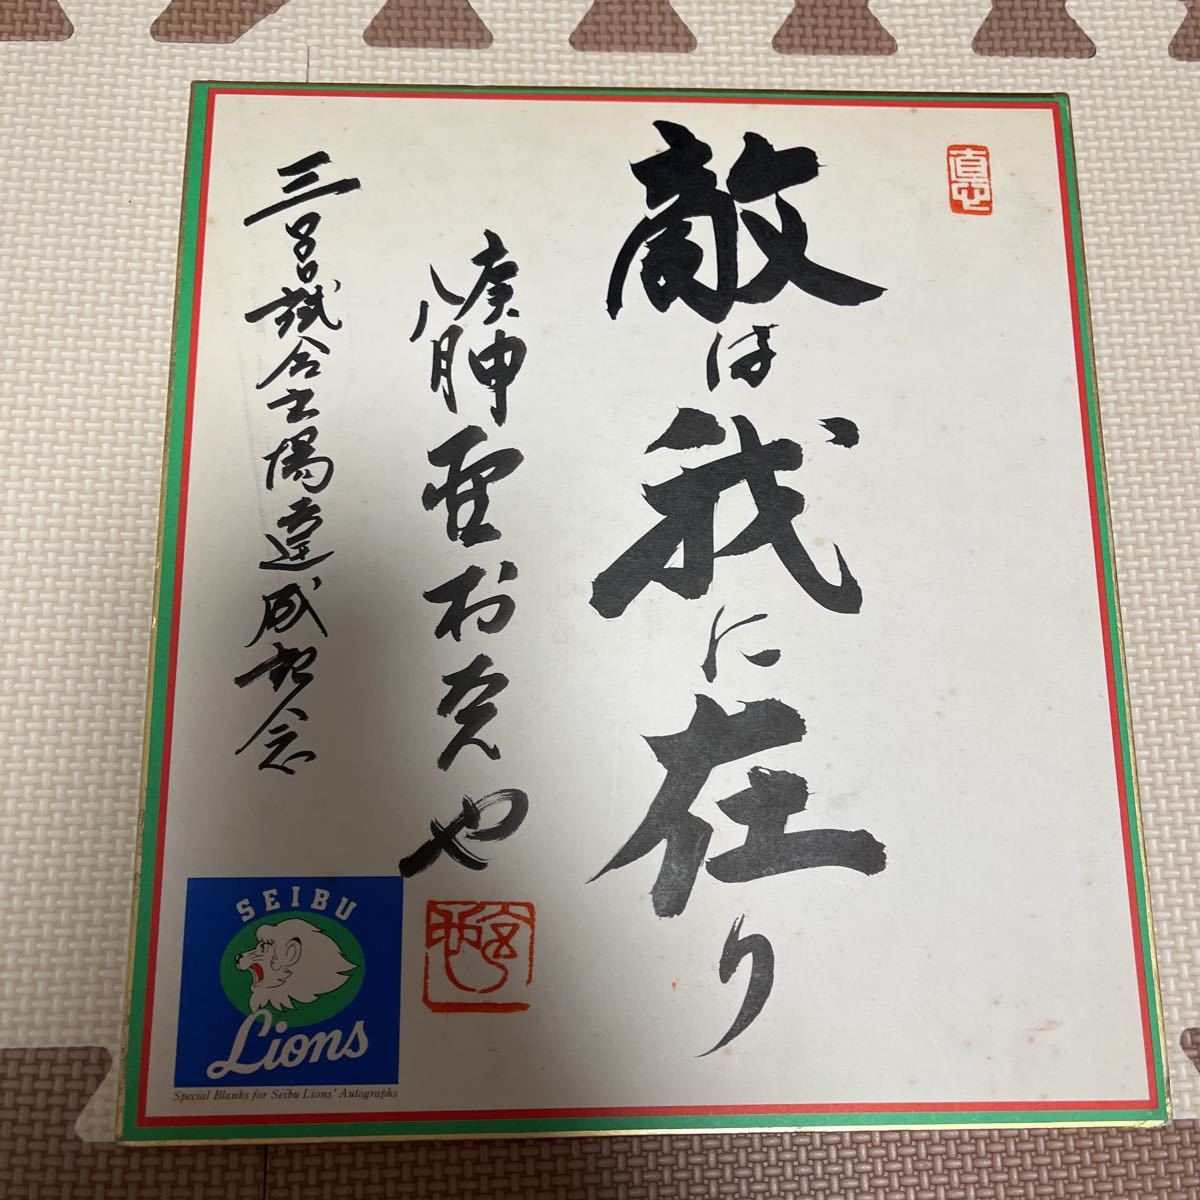 敵は我に在り
野村克也
試合出場達成記念
SEIBU
Lions
Special Blanks for Seibu Lions' Autographs